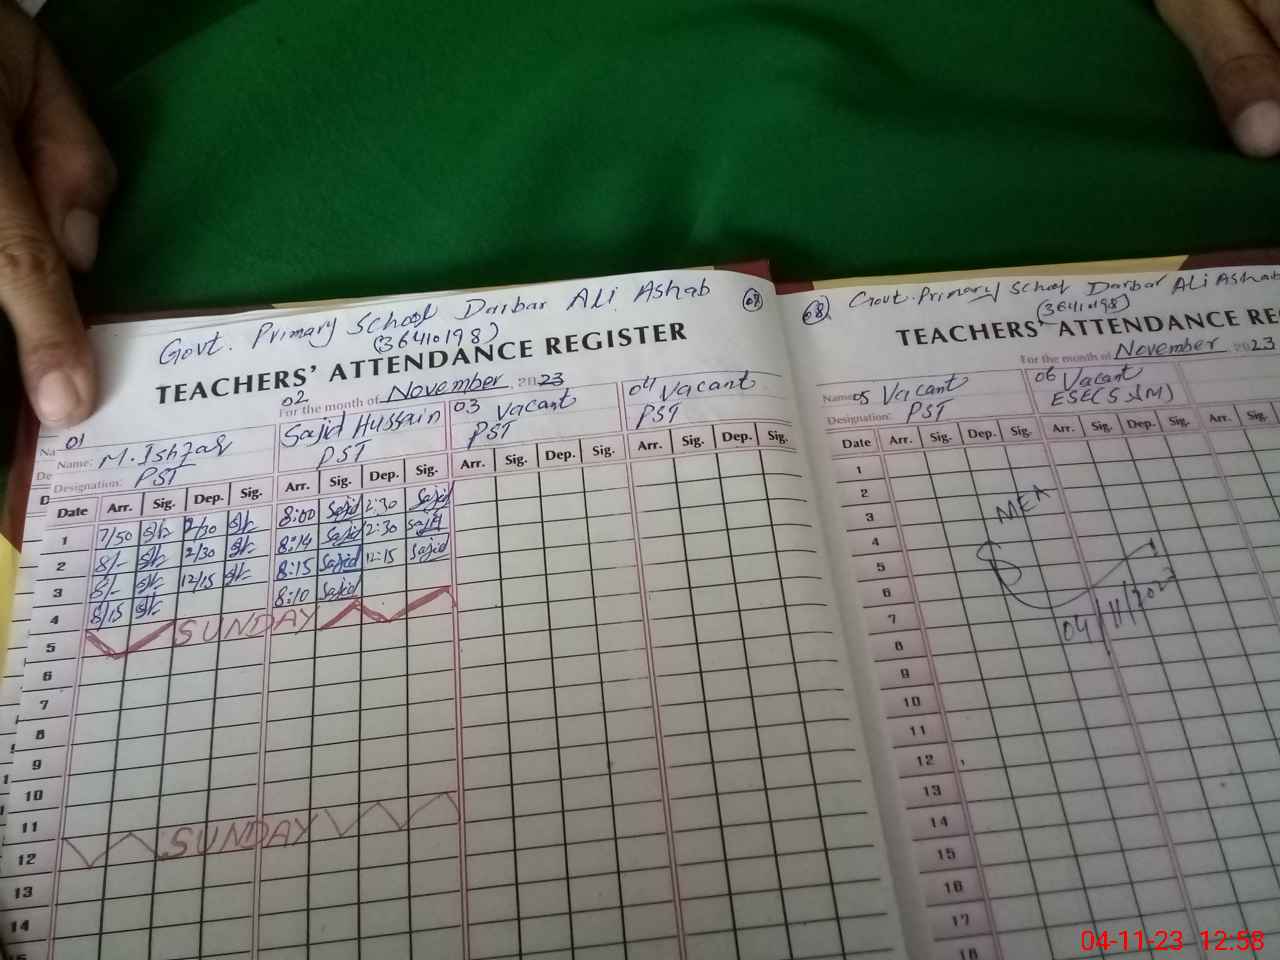 Govt. Primary School Darbar Ali Ashab 08
(36410198)
TEACHERS' ATTENDANCE REGISTER
For the month of November 2023
01 02 03 Vacant 04 Vacant
Name: M. Ishfaq Sajid Hussain PST PST
Designation: PST PST
Date Arr. Sig. Dep. Sig. Arr. Sig. Dep. Sig. Arr. Sig. Dep. Sig. Arr. Sig. Dep. Sig.
1 7/50 2/30 8:00 Sajid 2:30 Sajid
2 8/- 2/30 8:14 Sajid 2:30 Sajid
3 8/- 12/15 8:15 Sajid 12:15 Sajid
4 8/15 8:10 Sajid
5 SUNDAY
6
7
8
9
10
11
12 SUNDAY
13
14
08 Govt. Primary School Darbar Ali Ashab
(36410198)
TEACHERS' ATTENDANCE RE
For the month of November 2023
Name: 05 Vacant 06 Vacant
Designation: PST ESE(S&M)
Date Arr. Sig. Dep. Sig. Arr. Sig. Dep. Sig. Arr. Sig.
1
2
3 MEA
4
5
6
7 04/11/2023
8
9
10
11
12
13
14
15
16
17
18
04-11-23 12:58